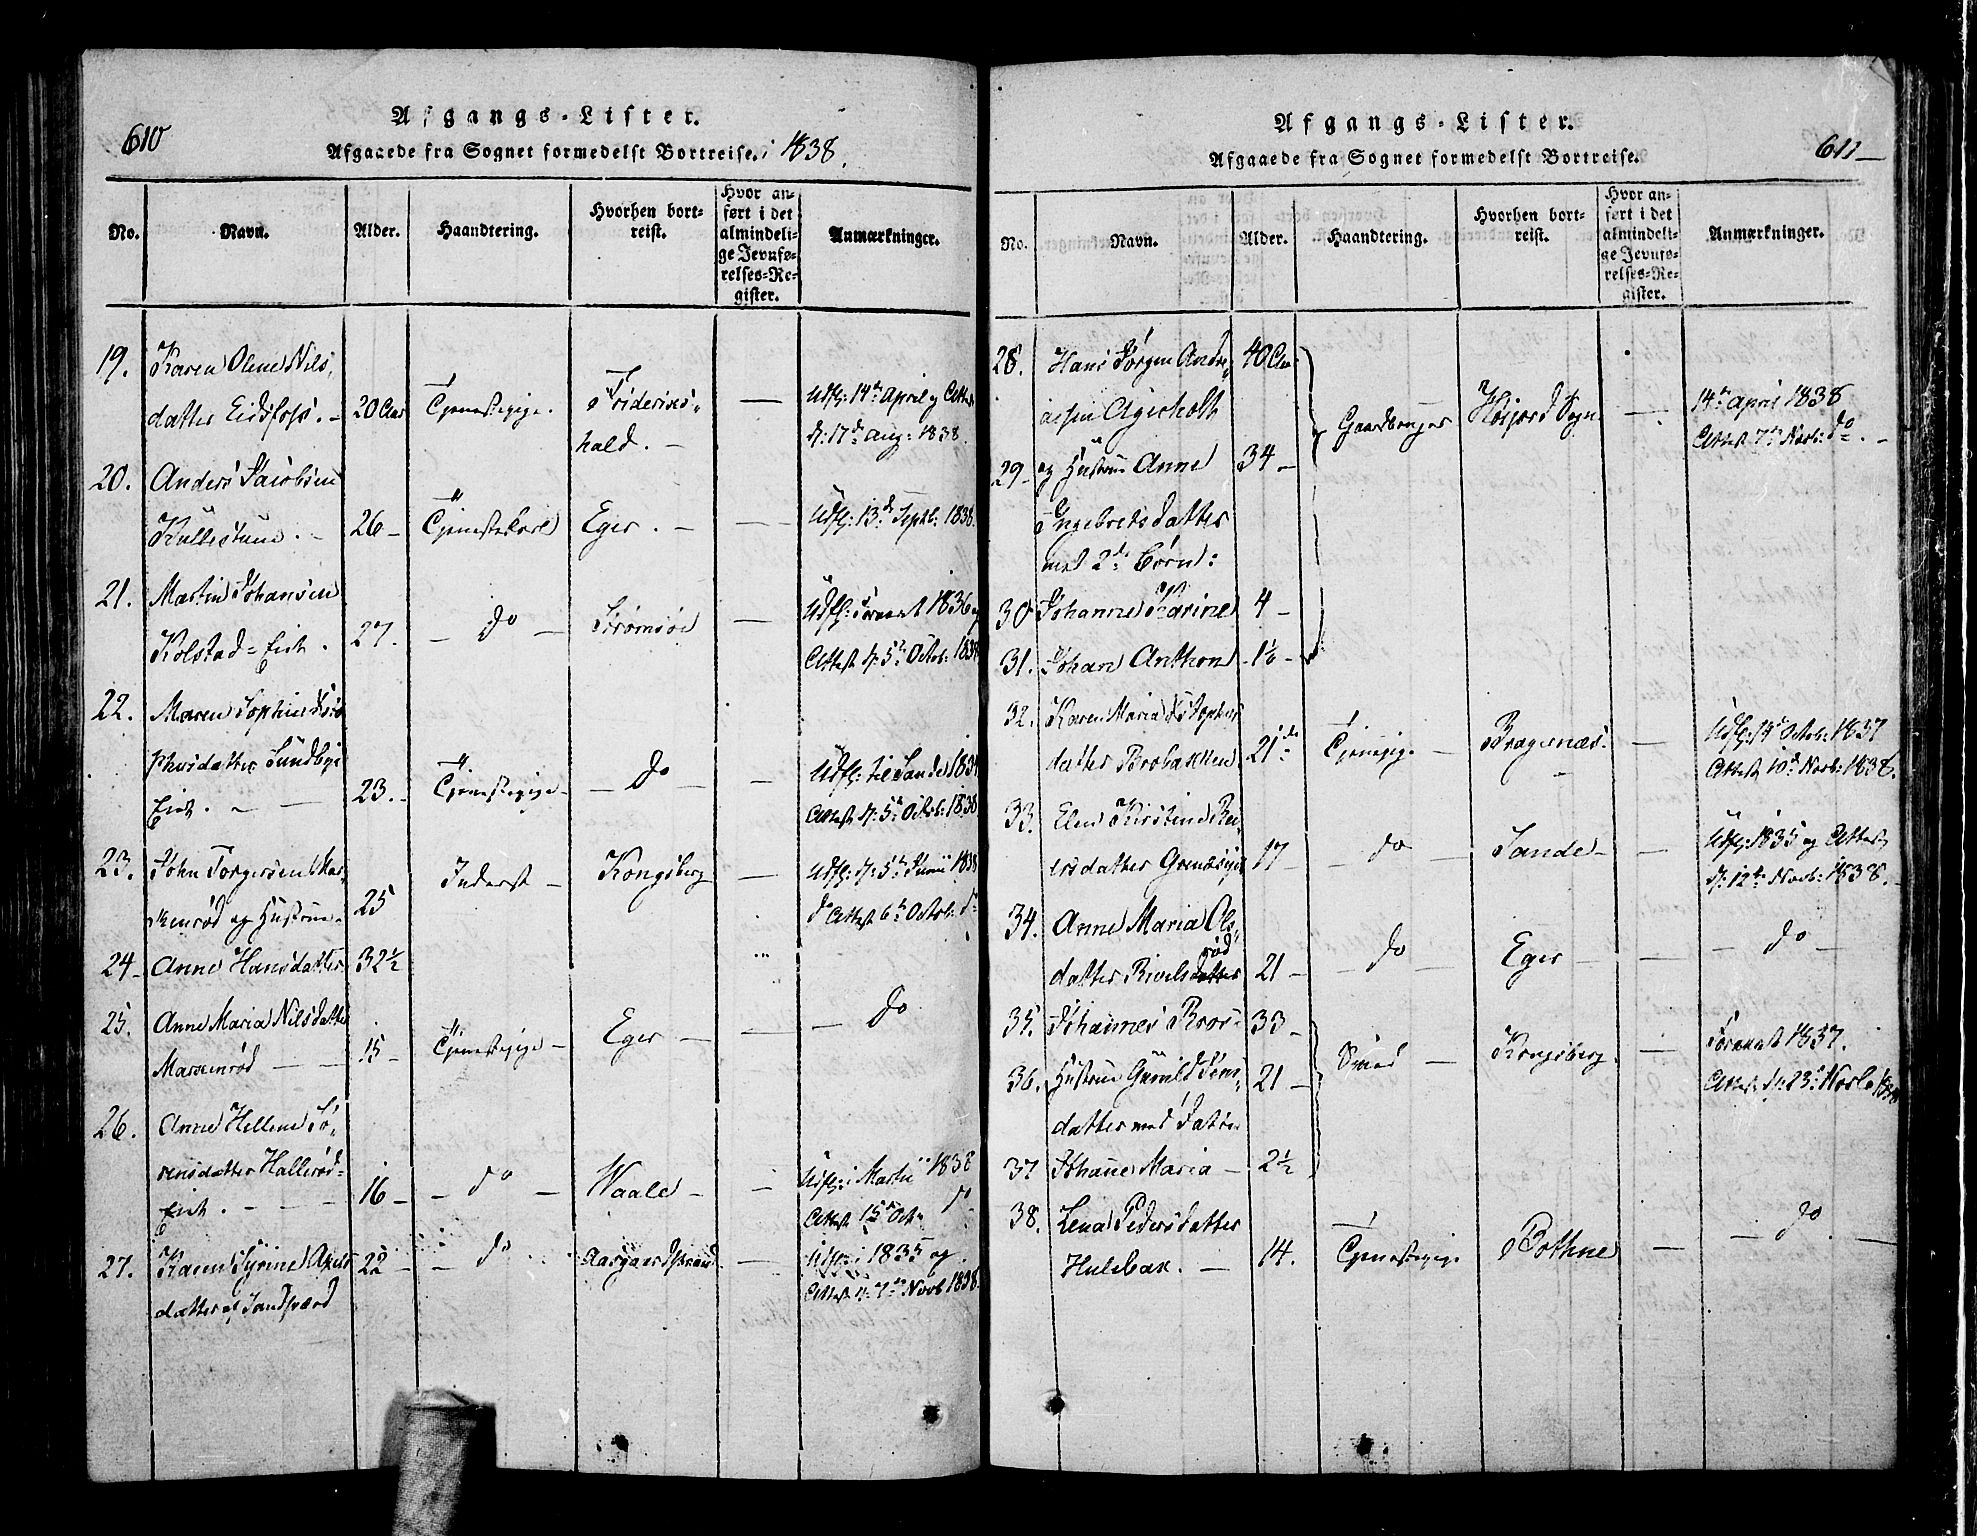 610
Afgangs-Lister.
Afgaaede fra Sognet formedelst Bortreise. i 1838.
No. Navn. Alder. Haandtering. Hvorhen bortreist. Hvor anført i det almindelige Jevnførelses-Register. Anmærkninger.
19. Karen Olene Nils-
datter Eidsfoss. - 20 Aar Tjenestepige. Friderics- — Udfl: 14de April og Attest
hald. - d: 17de Aug: 1838.
20. Anders Jacobsen
Kullestuen. - 26 - Tjenestekarl Eger. - — Udfl: 13de Septb: 1838.
21. Martin Johansen
Kolstad-Eiet. 27. - do - Strømsøe — Udfl: Foraaret 1836 og
Attest d: 5te Octob: 1838
22. Maren Sophie
phersdatter Sundbye
Eiet. - — 23. - Tjenestepige - - do - Udfl: til Sande 1834
Attest d: 5te Octob: 1838
23. John Torgersen
kenrød og Hustrue - 25 Inderst - Kongsberg - — Udfl: d: 5te Junii 1838
do Attest 6te Octob: do
24 - Anne Hansdatter 32½
25. Anne Maria Nilsdatter
— — 15 - Tjenestepige - Eger - — - do
26. Anne Hellene Sø-
rensdatter Hallerød-
Eiet. - — 16 - - do - Waale - - Udfl: i Martii 1838
Attest 15de Oct. do
27. Karen Syrine
datter af Sandsværd 22 - - do Aasgaardstrand - Udfl: i 1835 og
Attest d: 7de Novb 1838.
611 —
Afgangs-Lister.
Afgaaede fra Sognet formedelst Bortreise.
No. Navn. Alder. Haandtering. Hvorhen bortreist. Hvor anført i det almindelige Jevnførelses-Register. Anmærkninger.
28. Hans Jørgen Andre-
asen Agerholt 40 Aar Gaardbruger Sogn — 14de April 1838
Attest 7de Novb: do. -
29 - og Hustrue Anne 34 -
Ingebretsdatter
med 2de Børn:
30 Johanne Karine 4 -
31. Johan Anthon -
32. Karen Maria
datter Brobakken 21 Tjenepige - Bragernæs. — Udfl: 14de Octob: 1837
Attest 10de Novb: 1838.
33. Elen Kirstine
ersdatter 17 - - do - Sande - — Udfl: 1835 og Attest
d: 12te Novb: 1838. -
34. Anne Maria Ols-
rød
datter 21 - - do - Eger - — - do -
35. Johannes 33 -
36. Hustrue Gunild Jens- 21 - Smed - Kongsberg. — Foraaret 1837.
Attest d: 23de Novb 1838
datter med Datter
37 Johanne Maria - 2½
38. Lena Pedersdatter
Hulebak. - 14. Tjenestepige Bothne — - do. —